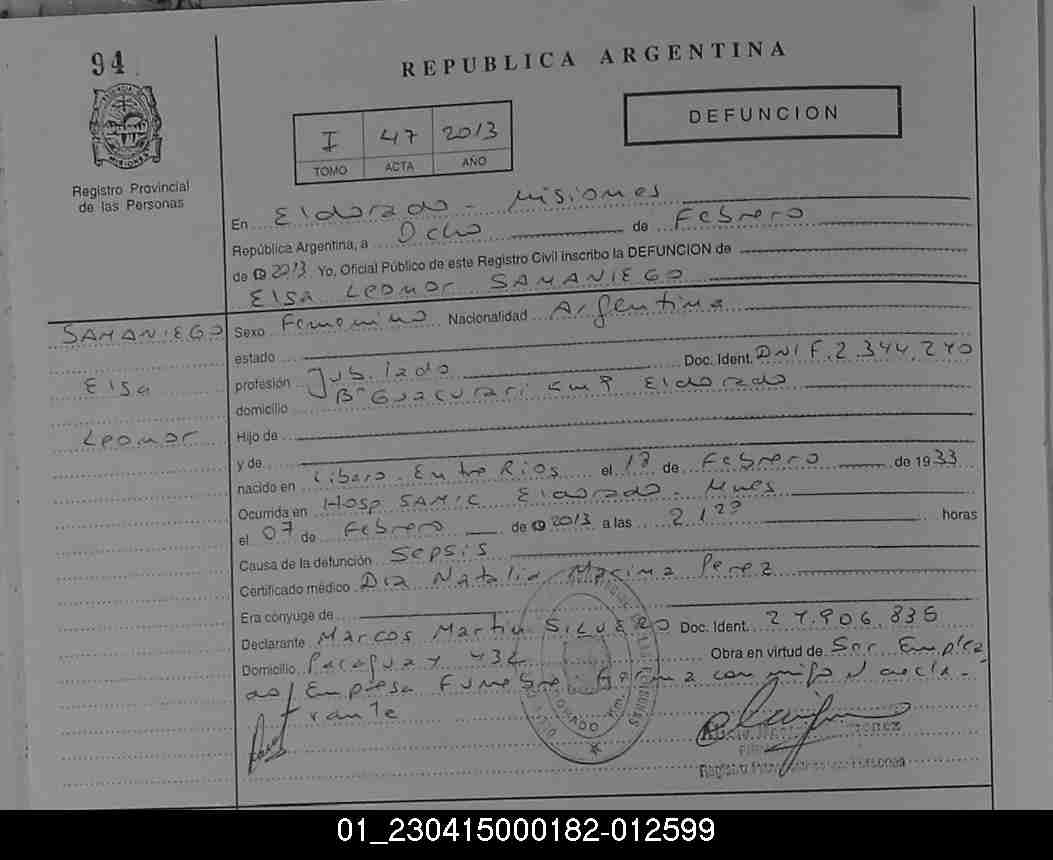 94
REPUBLICA ARGENTINA
I 47 2013
TOMO ACTA AÑO
DEFUNCION
Registro Provincial
de las Personas
En Eldorado - Misiones
República Argentina, a Ocho de Febrero
de 2013 Yo, Oficial Público de este Registro Civil inscribo la DEFUNCION de
Elsa Leonor SAMANIEGO
SAMANIEGO
Elsa
Leonor
Sexo Femenino Nacionalidad Argentina
estado
profesión Jubilado Doc. Ident. DNI F.2.344.240
domicilio Bº Guacurari Km 9 Eldorado
Hijo de
y de
nacido en Libaro - Entre Rios el 18 de Febrero de 1933
Ocurrida en Hosp SAMIC Eldorado - Mnes
el 07 de Febrero de 2013 a las 21 horas
Causa de la defunción Sepsis
Certificado médico Dra Natalia Marina Perez
Era cónyuge de
Declarante Marcos Martin SILVERO Doc. Ident. 27.906.836
Domicilio Paraguay 432 Obra en virtud de Ser Emplea
do Empresa Funebre. Firma conmigo el decla-
rante
Registro Personas
01_230415000182-012599